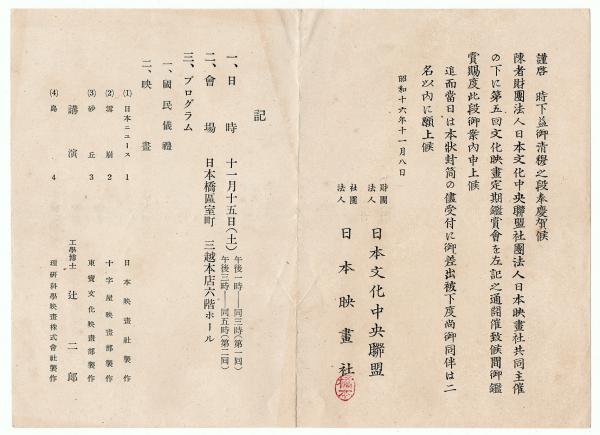 謹啓　時下益御清穆之段奉慶賀候
陳者財團法人日本文化中央聯盟社團法人日本映畫社共同主催
の下に第五回文化映畫定期鑑賞會を左記之通開催致候間御鑑
賞賜度此段御案内申上候
追而當日は本狀封筒の儘受付に御差出被下度尚御同伴は二
名以内に願上候
昭和十六年十一月八日
財團法人　日本文化中央聯盟
社團法人　日本映畫社
記
一、日時　十一月十五日(土)　午後一時——同三時(第一回)
午後三時——同五時(第二回)
二、會場　日本橋區室町　三越本店六階ホール
三、プログラム
一、國民儀禮
二、映畫
(1) 日本ニュース 1　日本映畫社製作
(2) 雲　2　十字屋映畫部製作
(3) 砂丘 3　東寶文化映畫部製作
講演　工學博士　辻二郎
(4) 島 4　理研科學映畫株式會社製作